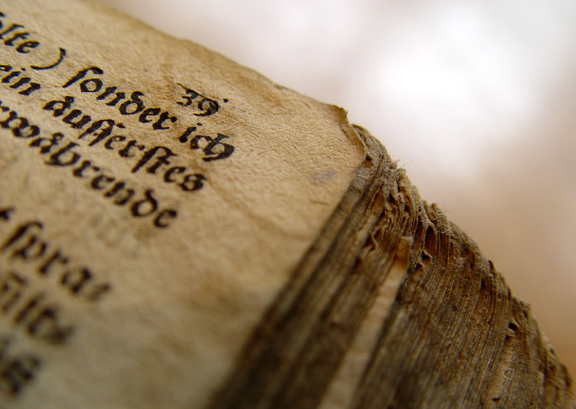 39.
olte ) ſonder ich
ein äuſſerſtes
rwährende
ſpra⸗